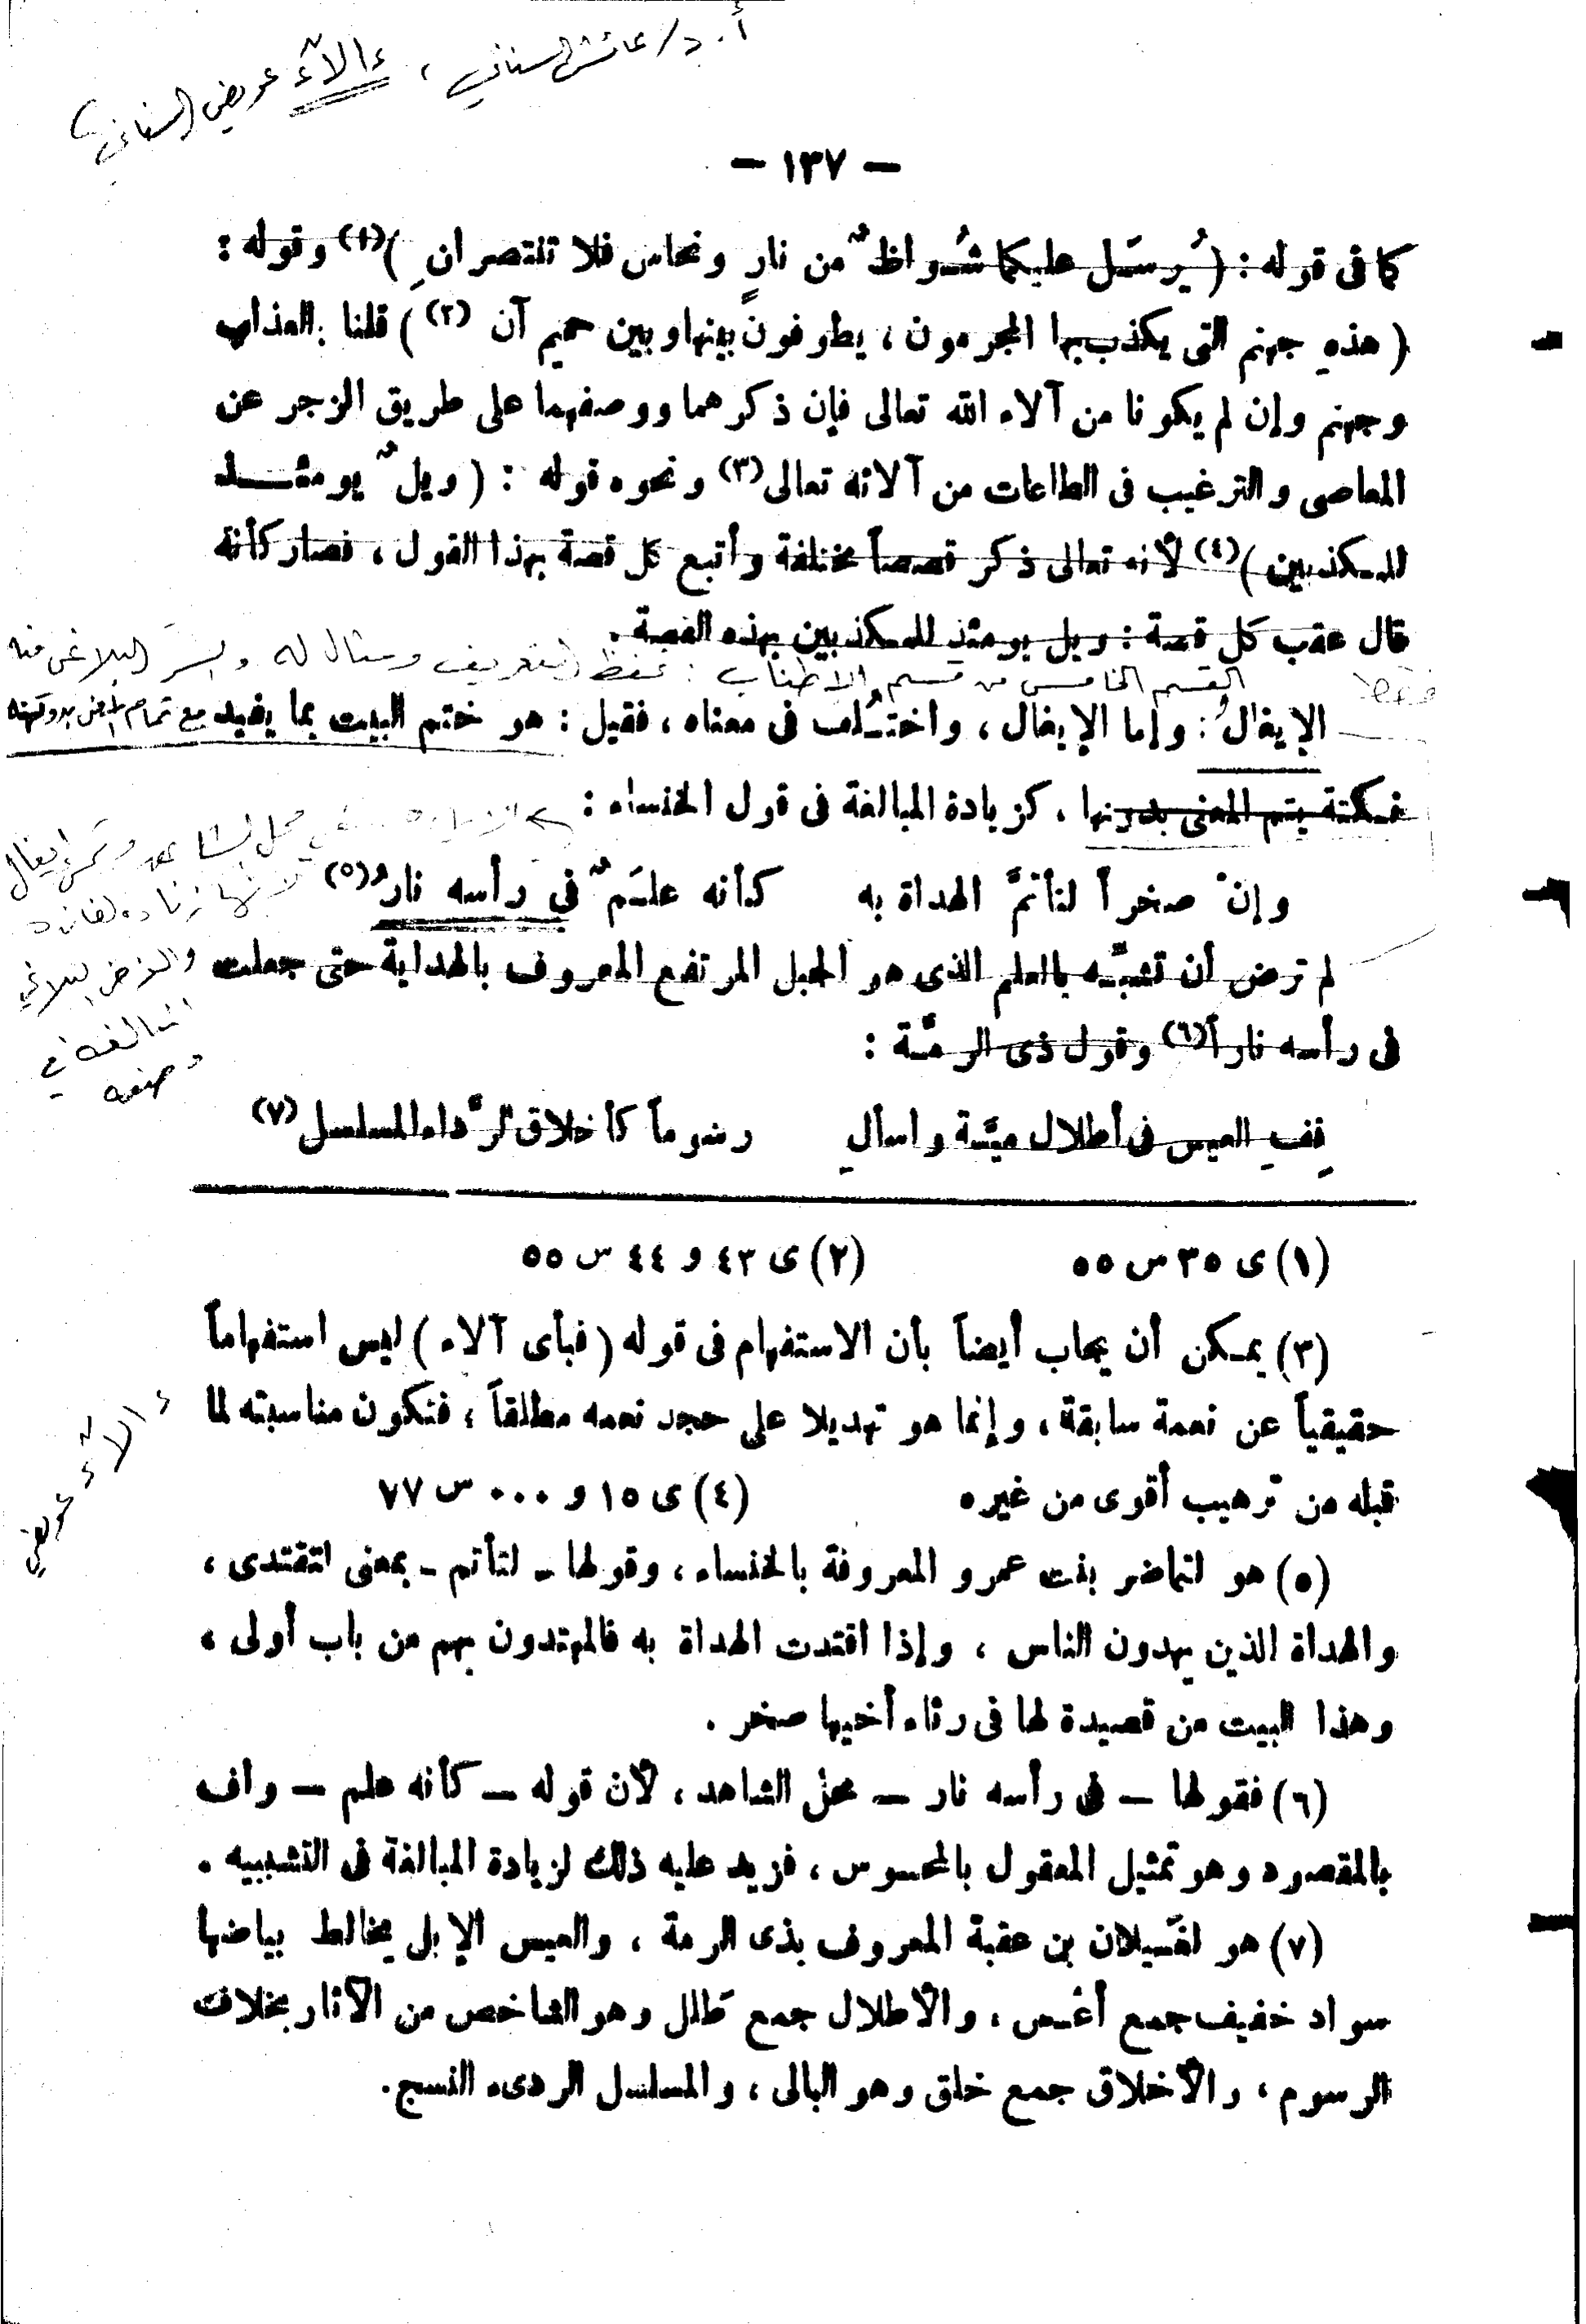 أ.د/ عائش السناني ، ءالآء عريض السناني
— ١٣٧ —
كما فى قوله : ( يُرسَل عليكما شُواظٌ من نارٍ ونحاس فلا تنتصرانِ )(١) وقوله :
( هذهِ جهنم التى يكذب بها المجرمون ، يطوفون بينها وبين حميم آن (٢) ) قلنا : العذاب
وجهنم وإن لم يكونا من آلاء الله تعالى فإن ذكرهما ووصفهما على طريق الزجر عن
المعاصى والترغيب فى الطاعات من آلائه تعالى(٣) ونحوه قوله : ( ويلٌ يومئـــذ
للمكذبين )(٤) لأنه تعالى ذكر قصصاً مختلفة وأتبع كل قصة بهذا القول ، فصار كأنه
قال عقب كل قصة : ويل يومئذ للمكذبين بهذه القصة .
القسم الخامس من قسم الاطناب : نحفظ التعريف ومثال له والسر البلاغي منه
الإيغالُ : وإما الإيغال ، واختُلف فى معناه ، فقيل : هو ختم البيت بما يفيد مع تمام المعنى بدونه
نكتة يتم المعنى بدونها ، كزيادة المبالغة فى قول الخنساء :
محل الشاهد
وإنْ صخراً لتأتمَّ الهداة به كأنه علَمٌ فى رأسه نارُ(٥)
لأنها زيادة
لم ترض أن تشبِّه بالعلم الذى هو الجبل المرتفع المعروف بالهداية حتى جعلت
والغرض البلاغي
المبالغة في
وصفه
فى رأسه ناراً(٦) وقول ذى الرمَّة :
قفِ العيس فى أطلال ميَّة واسألِ رسوماً كأخلاق الرِّداء المسلسل(٧)
(١) ى ٣٥ س ٥٥ (٢) ى ٤٣ و ٤٤ س ٥٥
(٣) يمكن أن يجاب أيضاً بأن الاستفهام فى قوله ( فبأى آلاء ) ليس استفهاماً
حقيقياً عن نعمة سابقة ، وإنما هو تهديلا على جحد نعمه مطلقاً ، فتكون مناسبته لما
قبله من ترهيب أقوى من غيره (٤) ى ١٥ و ٠٠٠ س ٧٧
ءالآء عريض
(٥) هو لتماضر بنت عمرو المعروفة بالخنساء ، وقولها – لتأتم – بمعنى لتقتدى ،
والهداة الذين يهدون الناس ، وإذا اقتدت الهداة به فالمهتدون بهم من باب أولى ،
وهذا البيت من قصيدة لها فى رثاء أخيها صخر .
(٦) فقولها — فى رأسه نار — محل الشاهد ، لأن قوله — كأنه علم — واف
بالمقصود وهو تمثيل المعقول بالمحسوس ، فزيد عليه ذلك لزيادة المبالغة فى التشبيه .
(٧) هو لغَيلان بن عقبة المعروف بذى الرمة ، والعيس الإبل يخالط بياضها
سواد خفيف جمع أعيس ، والأطلال جمع طلل وهو الشاخص من الآثار بخلاف
الرسوم ، والأخلاق جمع خلق وهو البالى ، والمسلسل الردىء النسج .